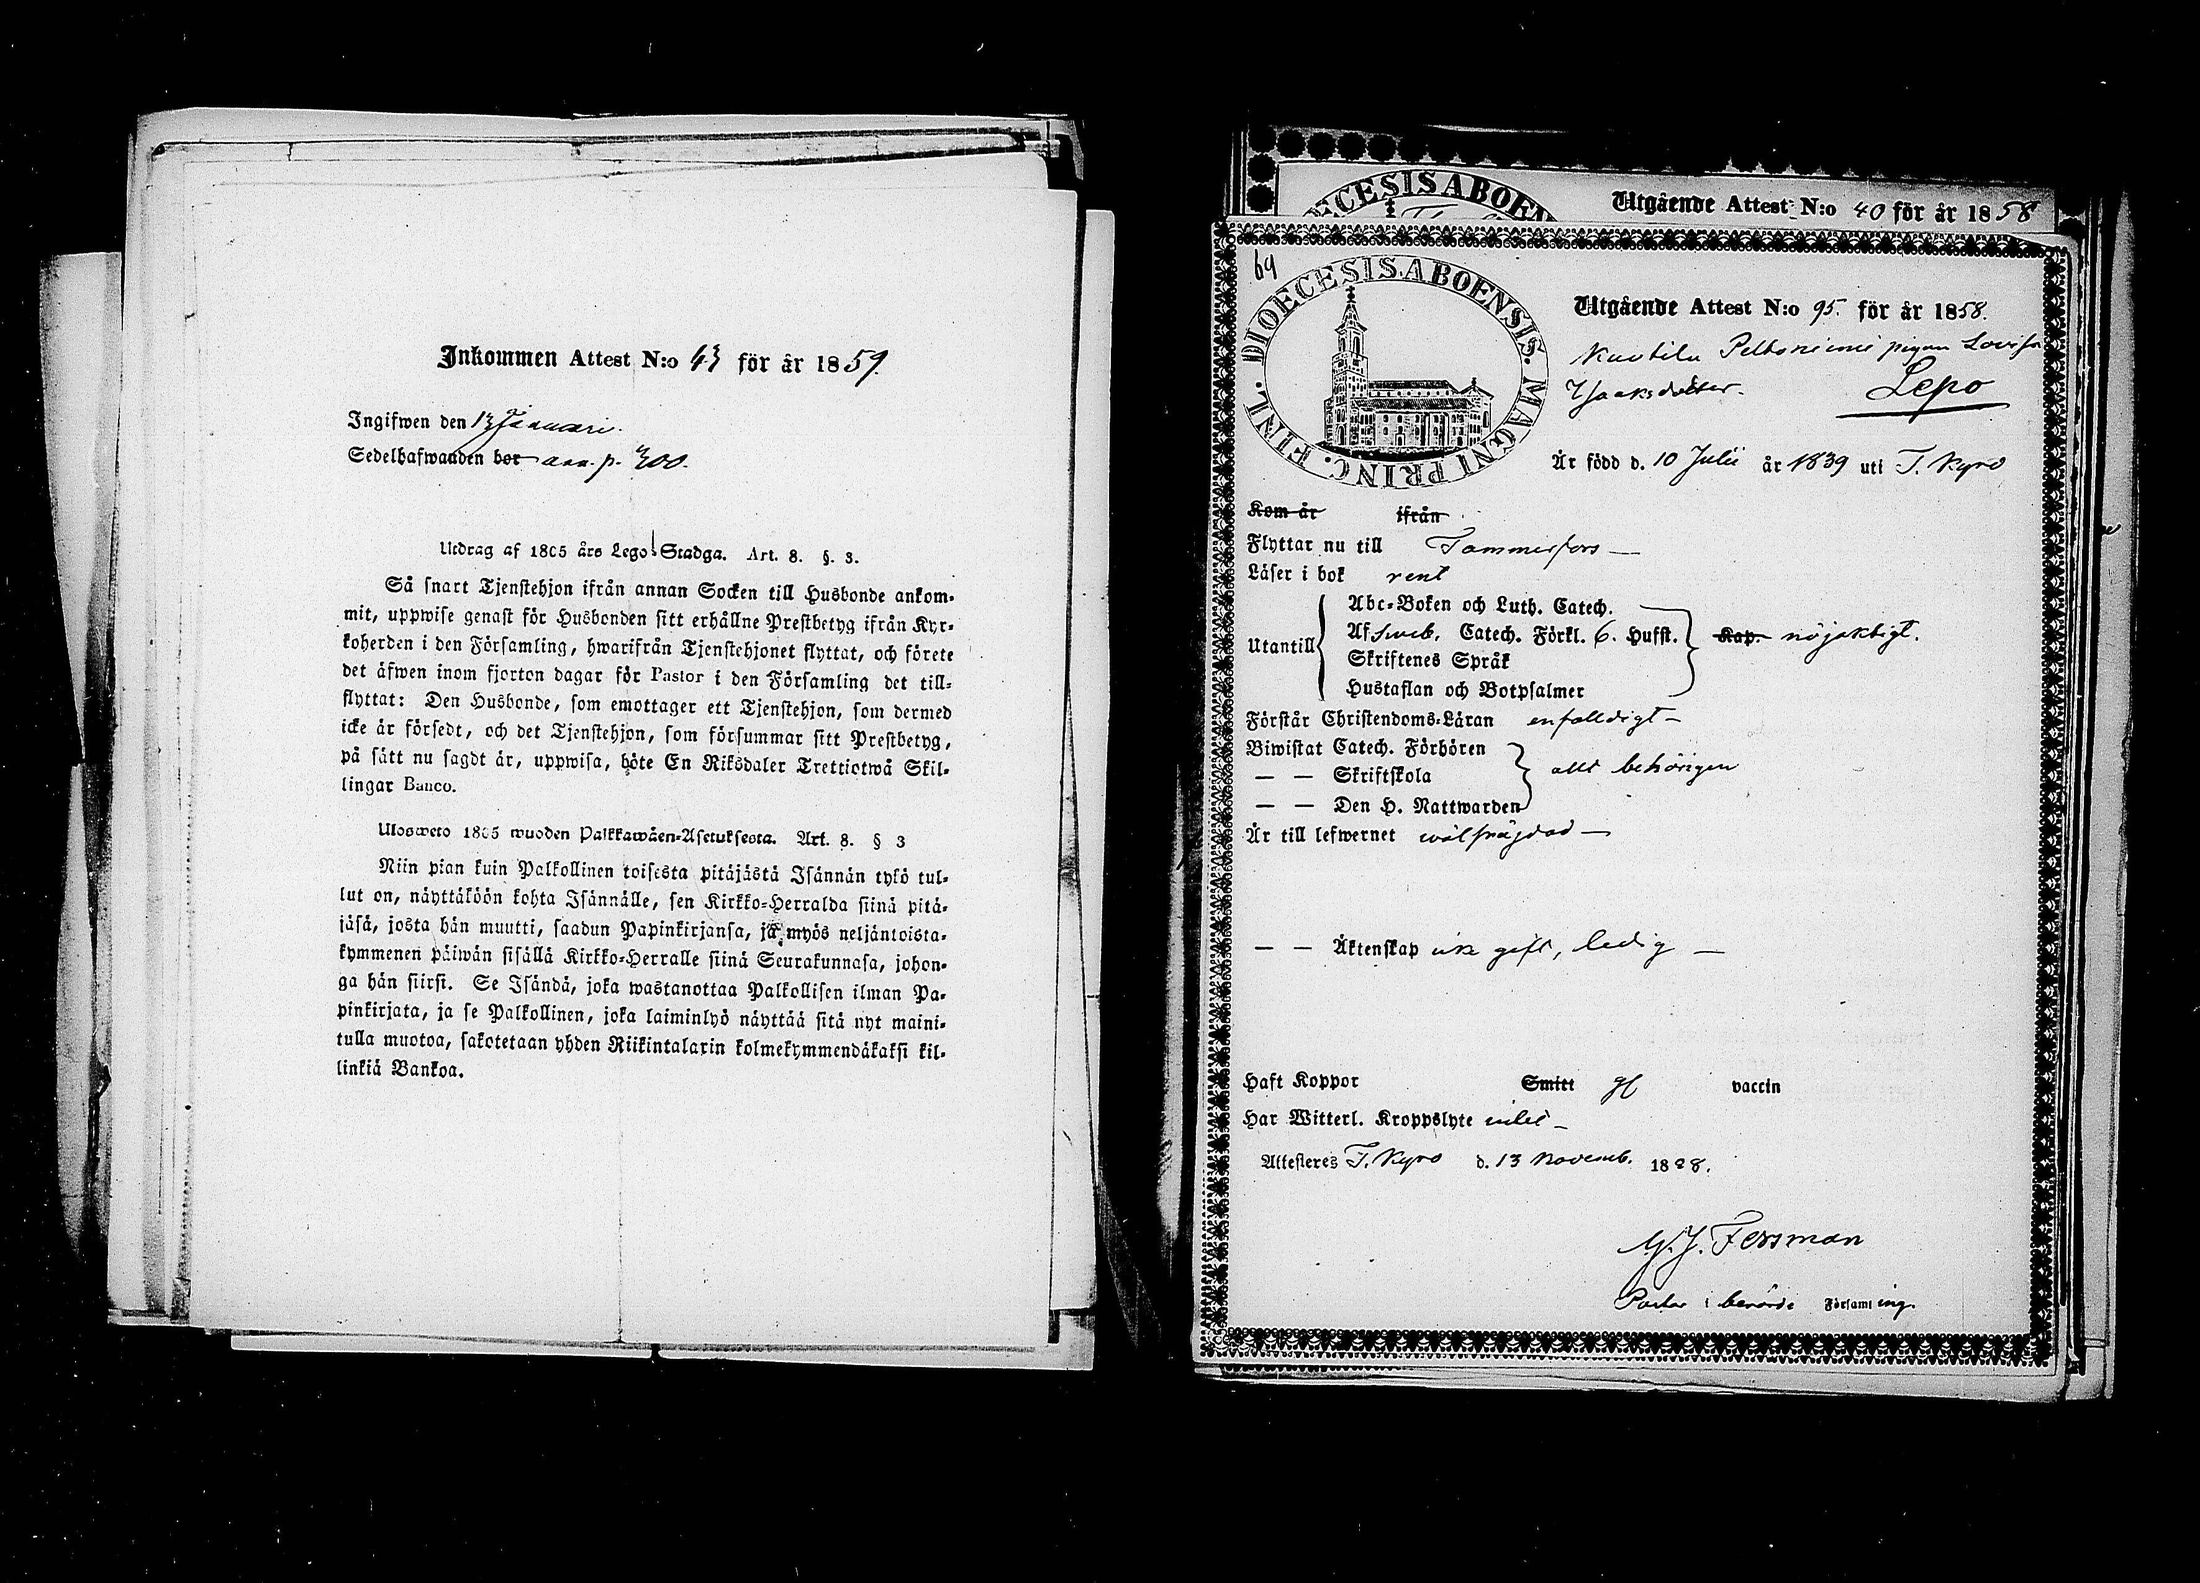 Inkommen Attest N:o 43 för år 1859.
Ingifwen den 13 Januari.
Sedelhafwanden bor ann. p. 300.
Utdrag af 1805 års Lego-Stadga. Art. 8. §. 3.
Så snart Tjenstehjon ifrån annan Socken till Husbonde ankom-
mit, uppwise genast för Husbonden sitt erhållne Prestbetyg ifrån Kyr-
koherden i den Församling, hwarifrån Tjenstehjonet flyttat, och förete
det äfwen inom fjorton dagar för Pastor i den Församling det till-
flyttat: Den Husbonde, som emottager ett Tjenstehjon, som dermed
icke är försedt, och det Tjenstehjon, som försummar sitt Prestbetyg,
på sätt nu sagdt är, uppwisa, böte En Riksdaler Trettiotwå Skil-
lingar Banco.
Ulosweto 1805 wuoden Palkkawäen-Asetuksesta. Art. 8. § 3
Niin pian kuin Palkollinen toisesta pitäjästä Isännän tykö tul-
lut on, näyttäköön kohta Isännälle, sen Kirkko-Herralda siinä pitä-
jäsä, josta hän muutti, saadun Papinkirjansa, ja myös neljäntoista-
kymmenen päiwän sisällä Kirkko-Herralle siinä Seurakunnasa, johon-
ga hän siirsi. Se Isändä, joka wastanottaa Palkollisen ilman Pa-
pinkirjata, ja se Palkollinen, joka laiminlyö näyttää sitä nyt maini-
tulla muotoa, sakotetaan yhden Riikintalarin kolmekymmendäkaksi kil-
linkiä Bankoa.
ECESIS ABOEN
Utgående Attest N:o 40 för år 1858
69
DIOECESIS. ABOENSIS. MAGNI PRINC. FINL.
Utgående Attest N:o 95. för år 1858.
Peltoniemi pigan Lovisa
Isaksdotter. Lepo
Är född d. 10 Julii år 1839 uti T. Kyro
Kom år ifrån
Flyttar nu till Tammerfors
Läser i bok rent
Abc-Boken och Luth. Catech.
Utantill Af Sweb. Catech. Förkl. 6. Hufst. Kap. nöjaktigt.
Skriftenes Språk
Hustaflan och Botpsalmer
Förstår Christendoms-Läran enfalldigt
Biwistat Catech. Förhören
— — Skriftskola allt behörigen
— — Den H. Nattwarden
Är till lefwernet wälfrägdad
— — Äktenskap icke gift, ledig
Haft Koppor Smitt vaccin
Har Witterl. Kroppslyte intet
Attesteres T. Kyro d. 13 Novemb. 1858.
G. J. Forsman
Pastor i berörde Församling.